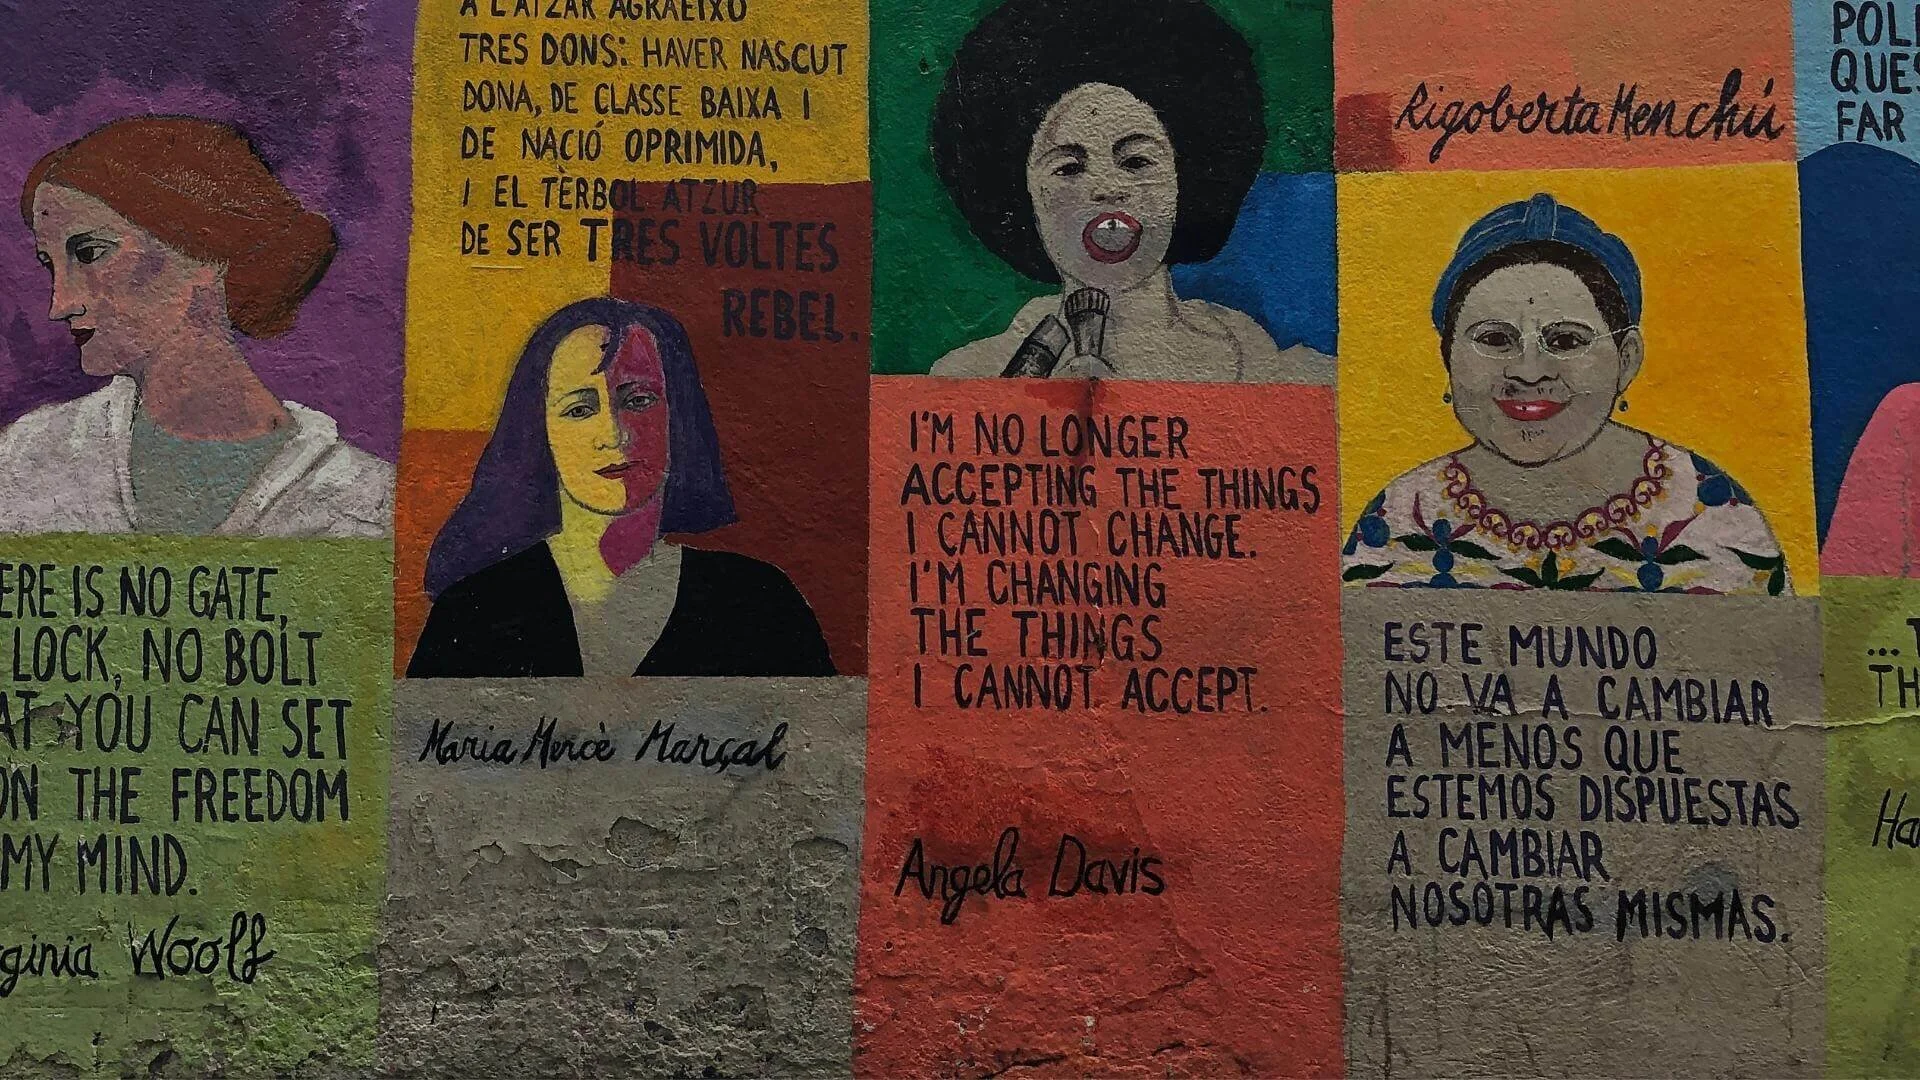 NO GATE,
LOCK, NO BOLT
YOU CAN SET
THE FREEDOM
MY MIND.
Woolf
A L'ATZAR AGRAEIXO
TRES DONS: HAVER NASCUT
DONA, DE CLASSE BAIXA I
DE NACIÓ OPRIMIDA,
I EL TÈRBOL ATZUR
DE SER TRES VOLTES
REBEL.
Maria Mercè Marçal
I'M NO LONGER
ACCEPTING THE THINGS
I CANNOT CHANGE.
I'M CHANGING
THE THINGS
I CANNOT ACCEPT.
Angela Davis
Rigoberta Menchú
ESTE MUNDO
NO VA A CAMBIAR
A MENOS QUE
ESTEMOS DISPUESTAS
A CAMBIAR
NOSOTRAS MISMAS.
FAR